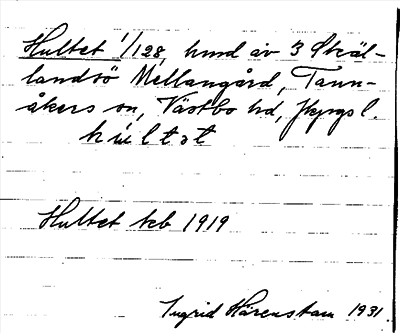 Hultet 1/128, hmd av 3 Skäl-
landsö Mellangård, Tann-
åkers sn, Västbo hd, Jkpgs l.
hultət
Hultet kb 1919
Ingrid Härenstam 1931